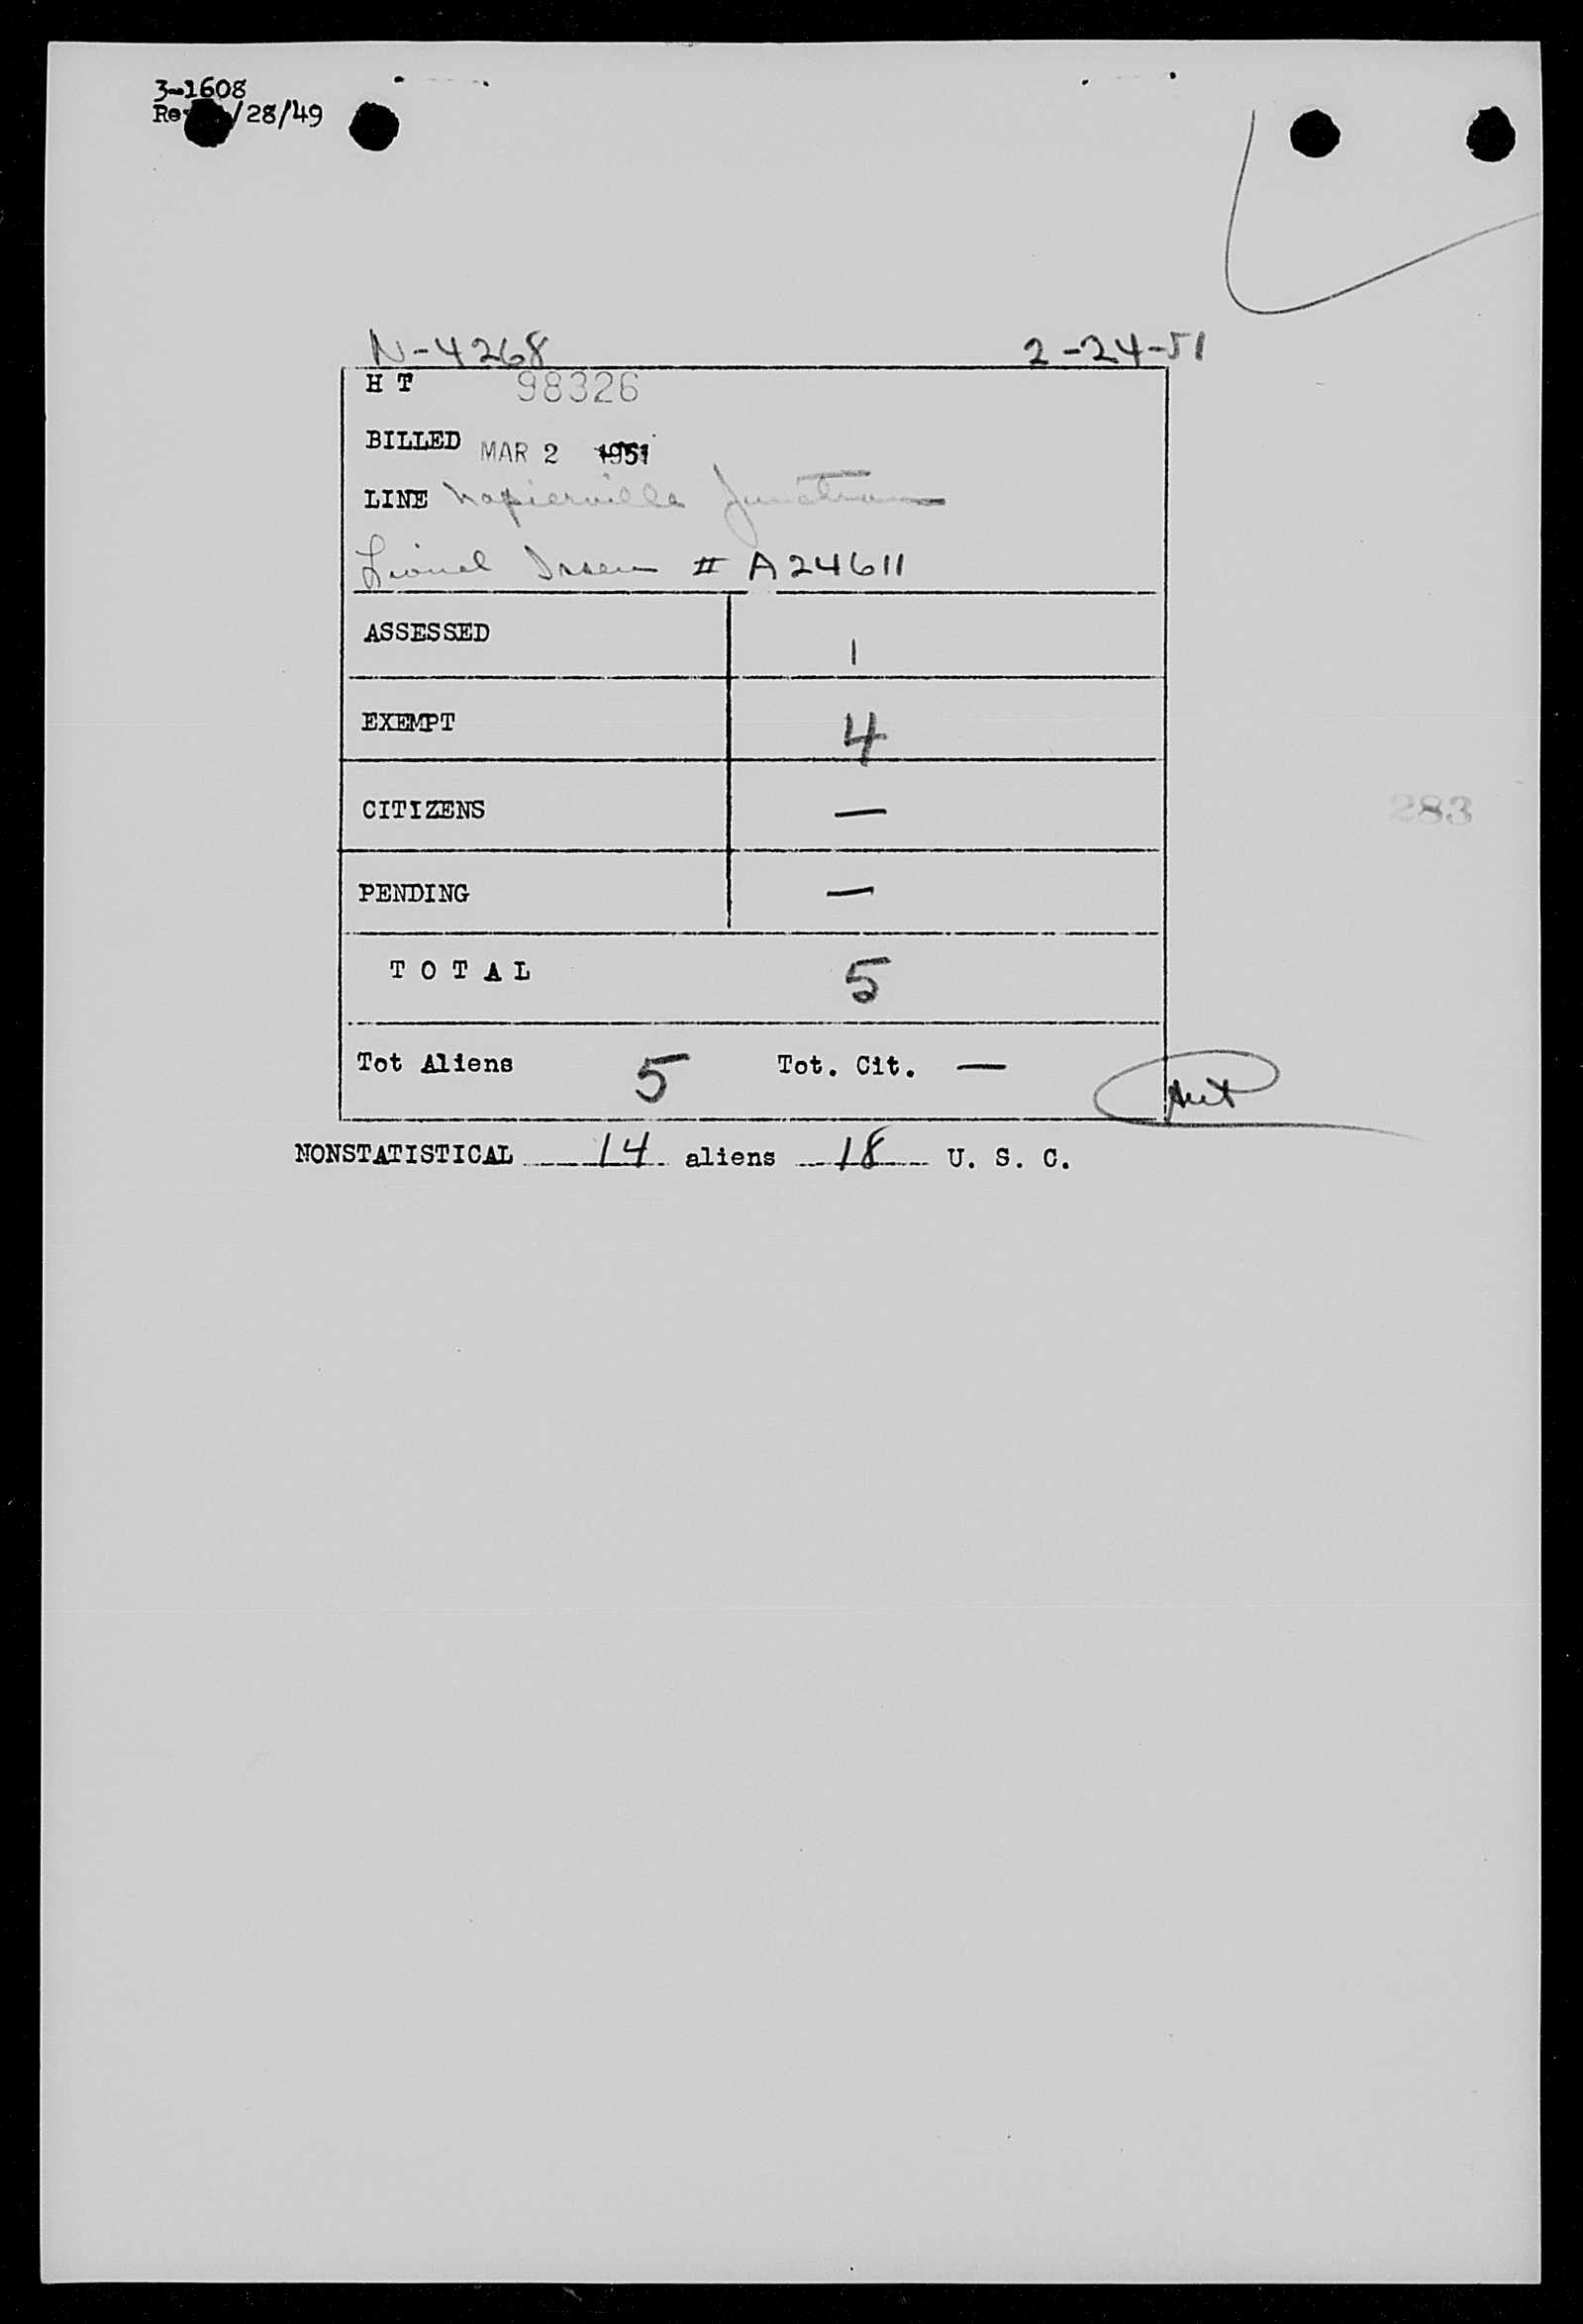 3-1608
/28/49
N-4268 2-24-51
H T 98326
BILLED MAR 2 1951
LINE Napierville Junction
Lionel # A24611
ASSESSED 1
EXEMPT 4
CITIZENS —
PENDING —
283
T O T A L 5
Tot Aliens 5 Tot. Cit. —
NONSTATISTICAL 14 aliens 18 U. S. C.